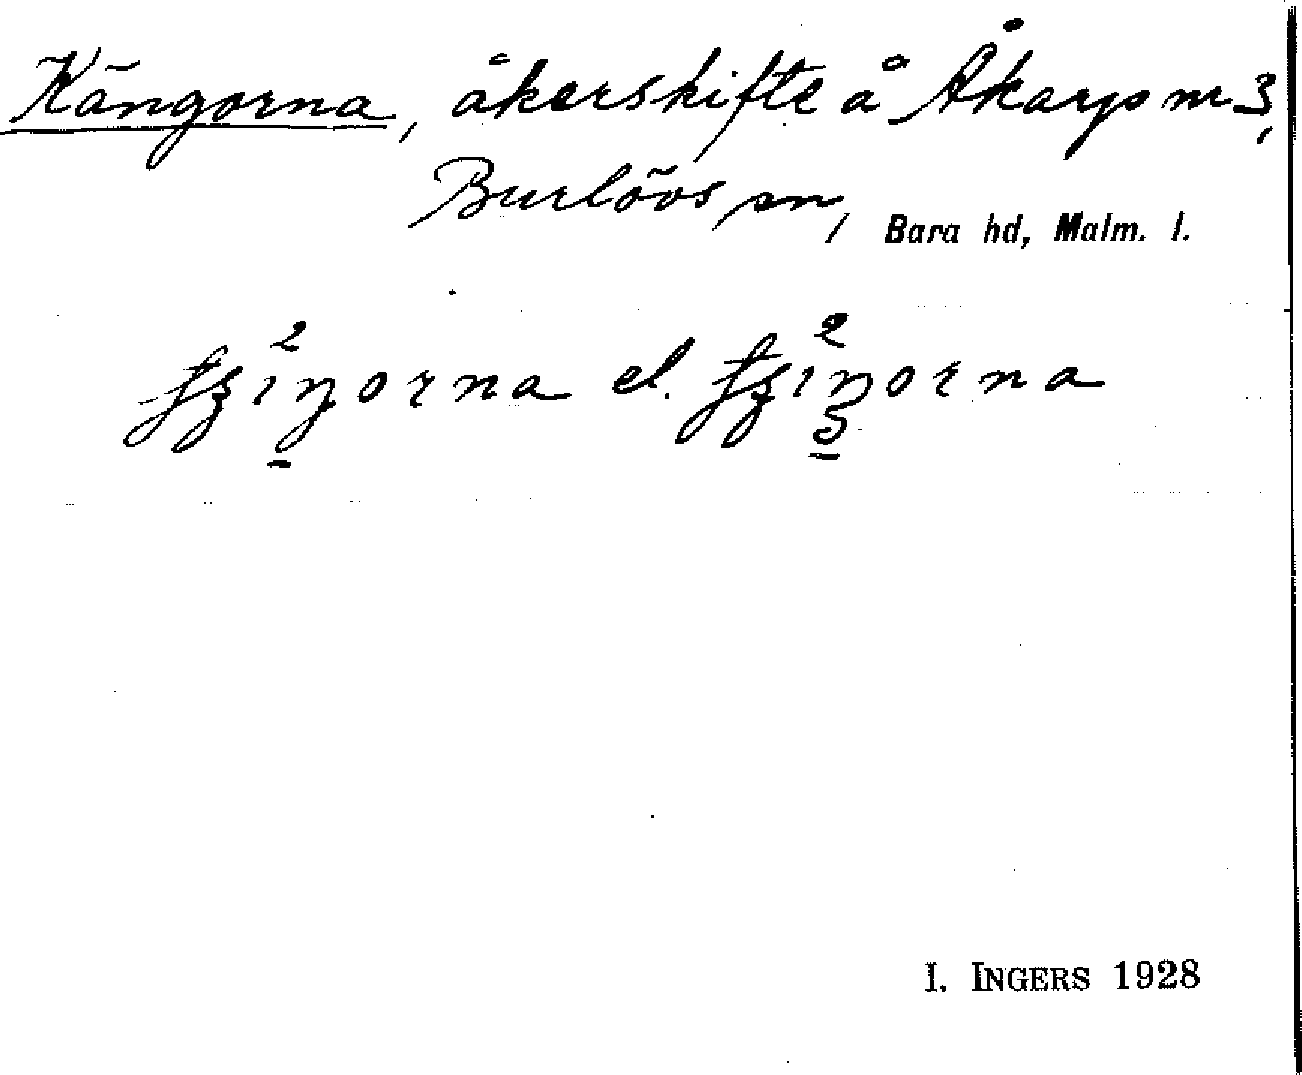 Kängorna, åkerskifte å Åkarp nr 3,
Burlövs sn, Bara hd, Malm. l.
el.
I. INGERS 1928